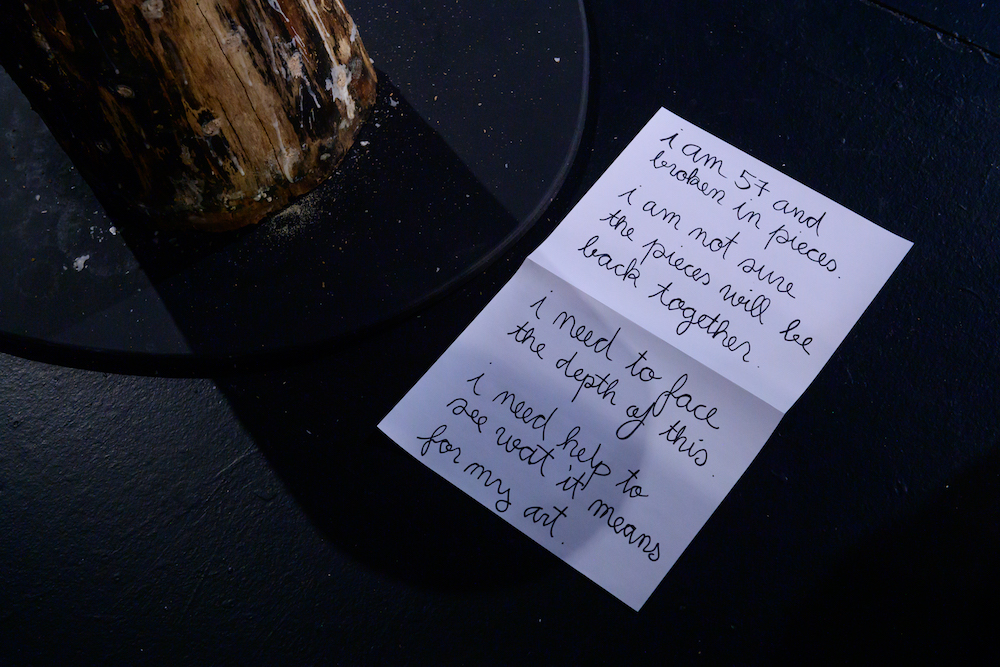 i am 57 and
broken in pieces.
i am not sure
the pieces will be
back together.
i need to face
the depth of this.
i need help to
see wat it means
for my art.